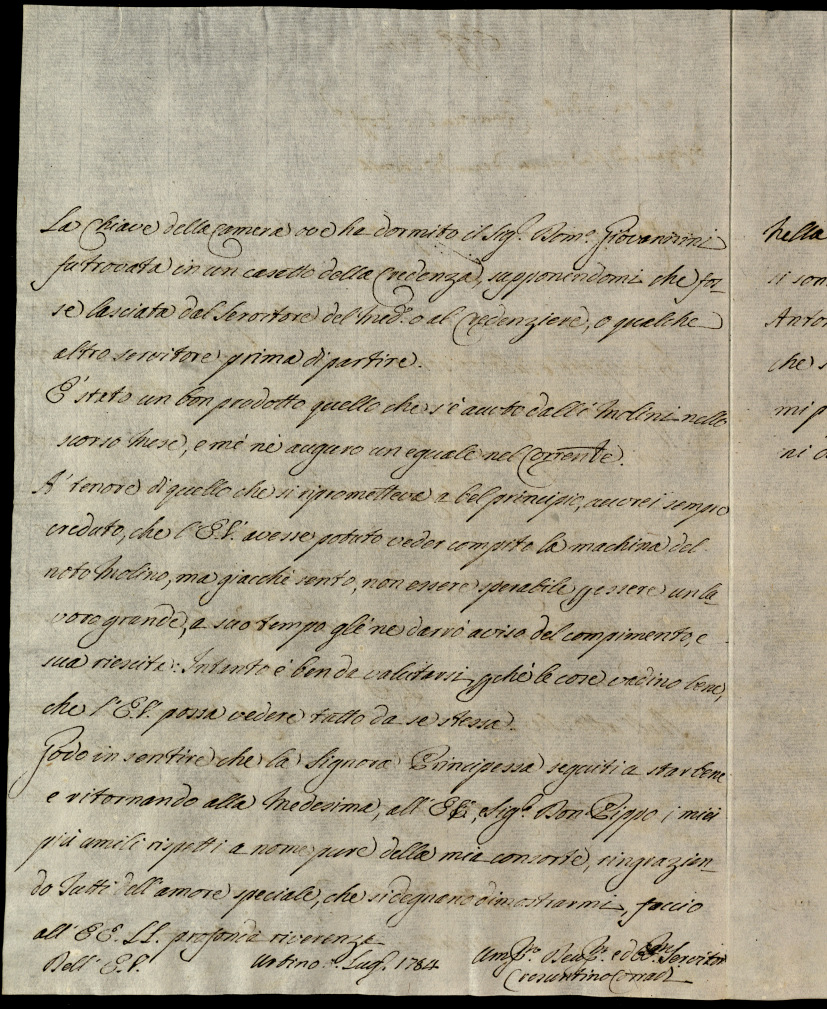 La Chiave della Camera ove ha dormito il Sig.r Dom.o Giovannini
fu trovata in un casetto della Credenza, supponendomi che fos-
se lasciata dal Servitore del med.o o al Credenziere, o qualche
altro servitore prima di partire.
E' stato un bon prodotto quello che s'è avuto dalli Molini nello
scorso Mese, e mè nè auguro un eguale nel Corrente.
A' tenore di quello che si riprometteva a bel principio, averei sempre
creduto, che l'E.V. avesse potuto veder compita la machina del
noto Molino, ma giacchè sento, non essere sperabile p essere un la-
voro grande, a suo tempo gle ne darrò aviso del compimento, e
sua riescita: Intanto è ben da valutarsi, pchè le cose vadino bene,
che l'E.V. possa vedere tutto da se stessa.
Godo in sentire che la Signora Principessa seguiti a star bene
e ritornando alla Medesima, all' Sig.r Don Pippo i miei
più umili rispetti a nome pure della mia consorte, ringrazian-
do Tutti dell'amore speciale, che si degnano dimostrarmi, faccio
all' EE. LL. profonda riverenza
Dell' E.V. Urbino Lug.o 1784 Um.o Dev.o ed Servitor
Crescentino Corradi
nella
si son
Anton
che s
mi p
ni d